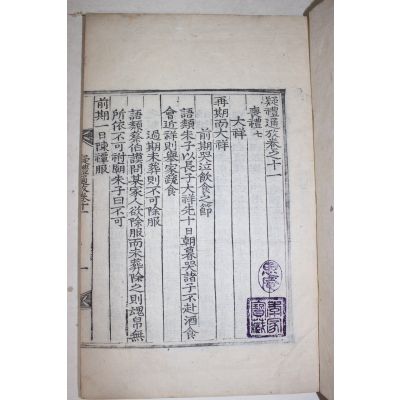 疑禮通攷卷之十一
喪禮七
大祥
再期而大祥
前期哭泣飮食之節
語類朱子以長子大祥先十日朝暮哭諸子不赴酒食
會近祥則擧家蔬食
過期未葬則不可除服
語類蔡伯謨問某家人欲除服而未葬除之則魂帛無
所依不可祔廟朱子曰不可
前期一日陳禫服